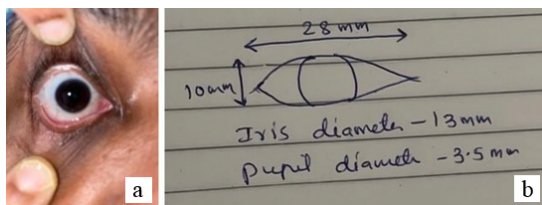 28 mm
10mm
Iris diameter - 13mm
Pupil diameter - 3.5 mm
a
b